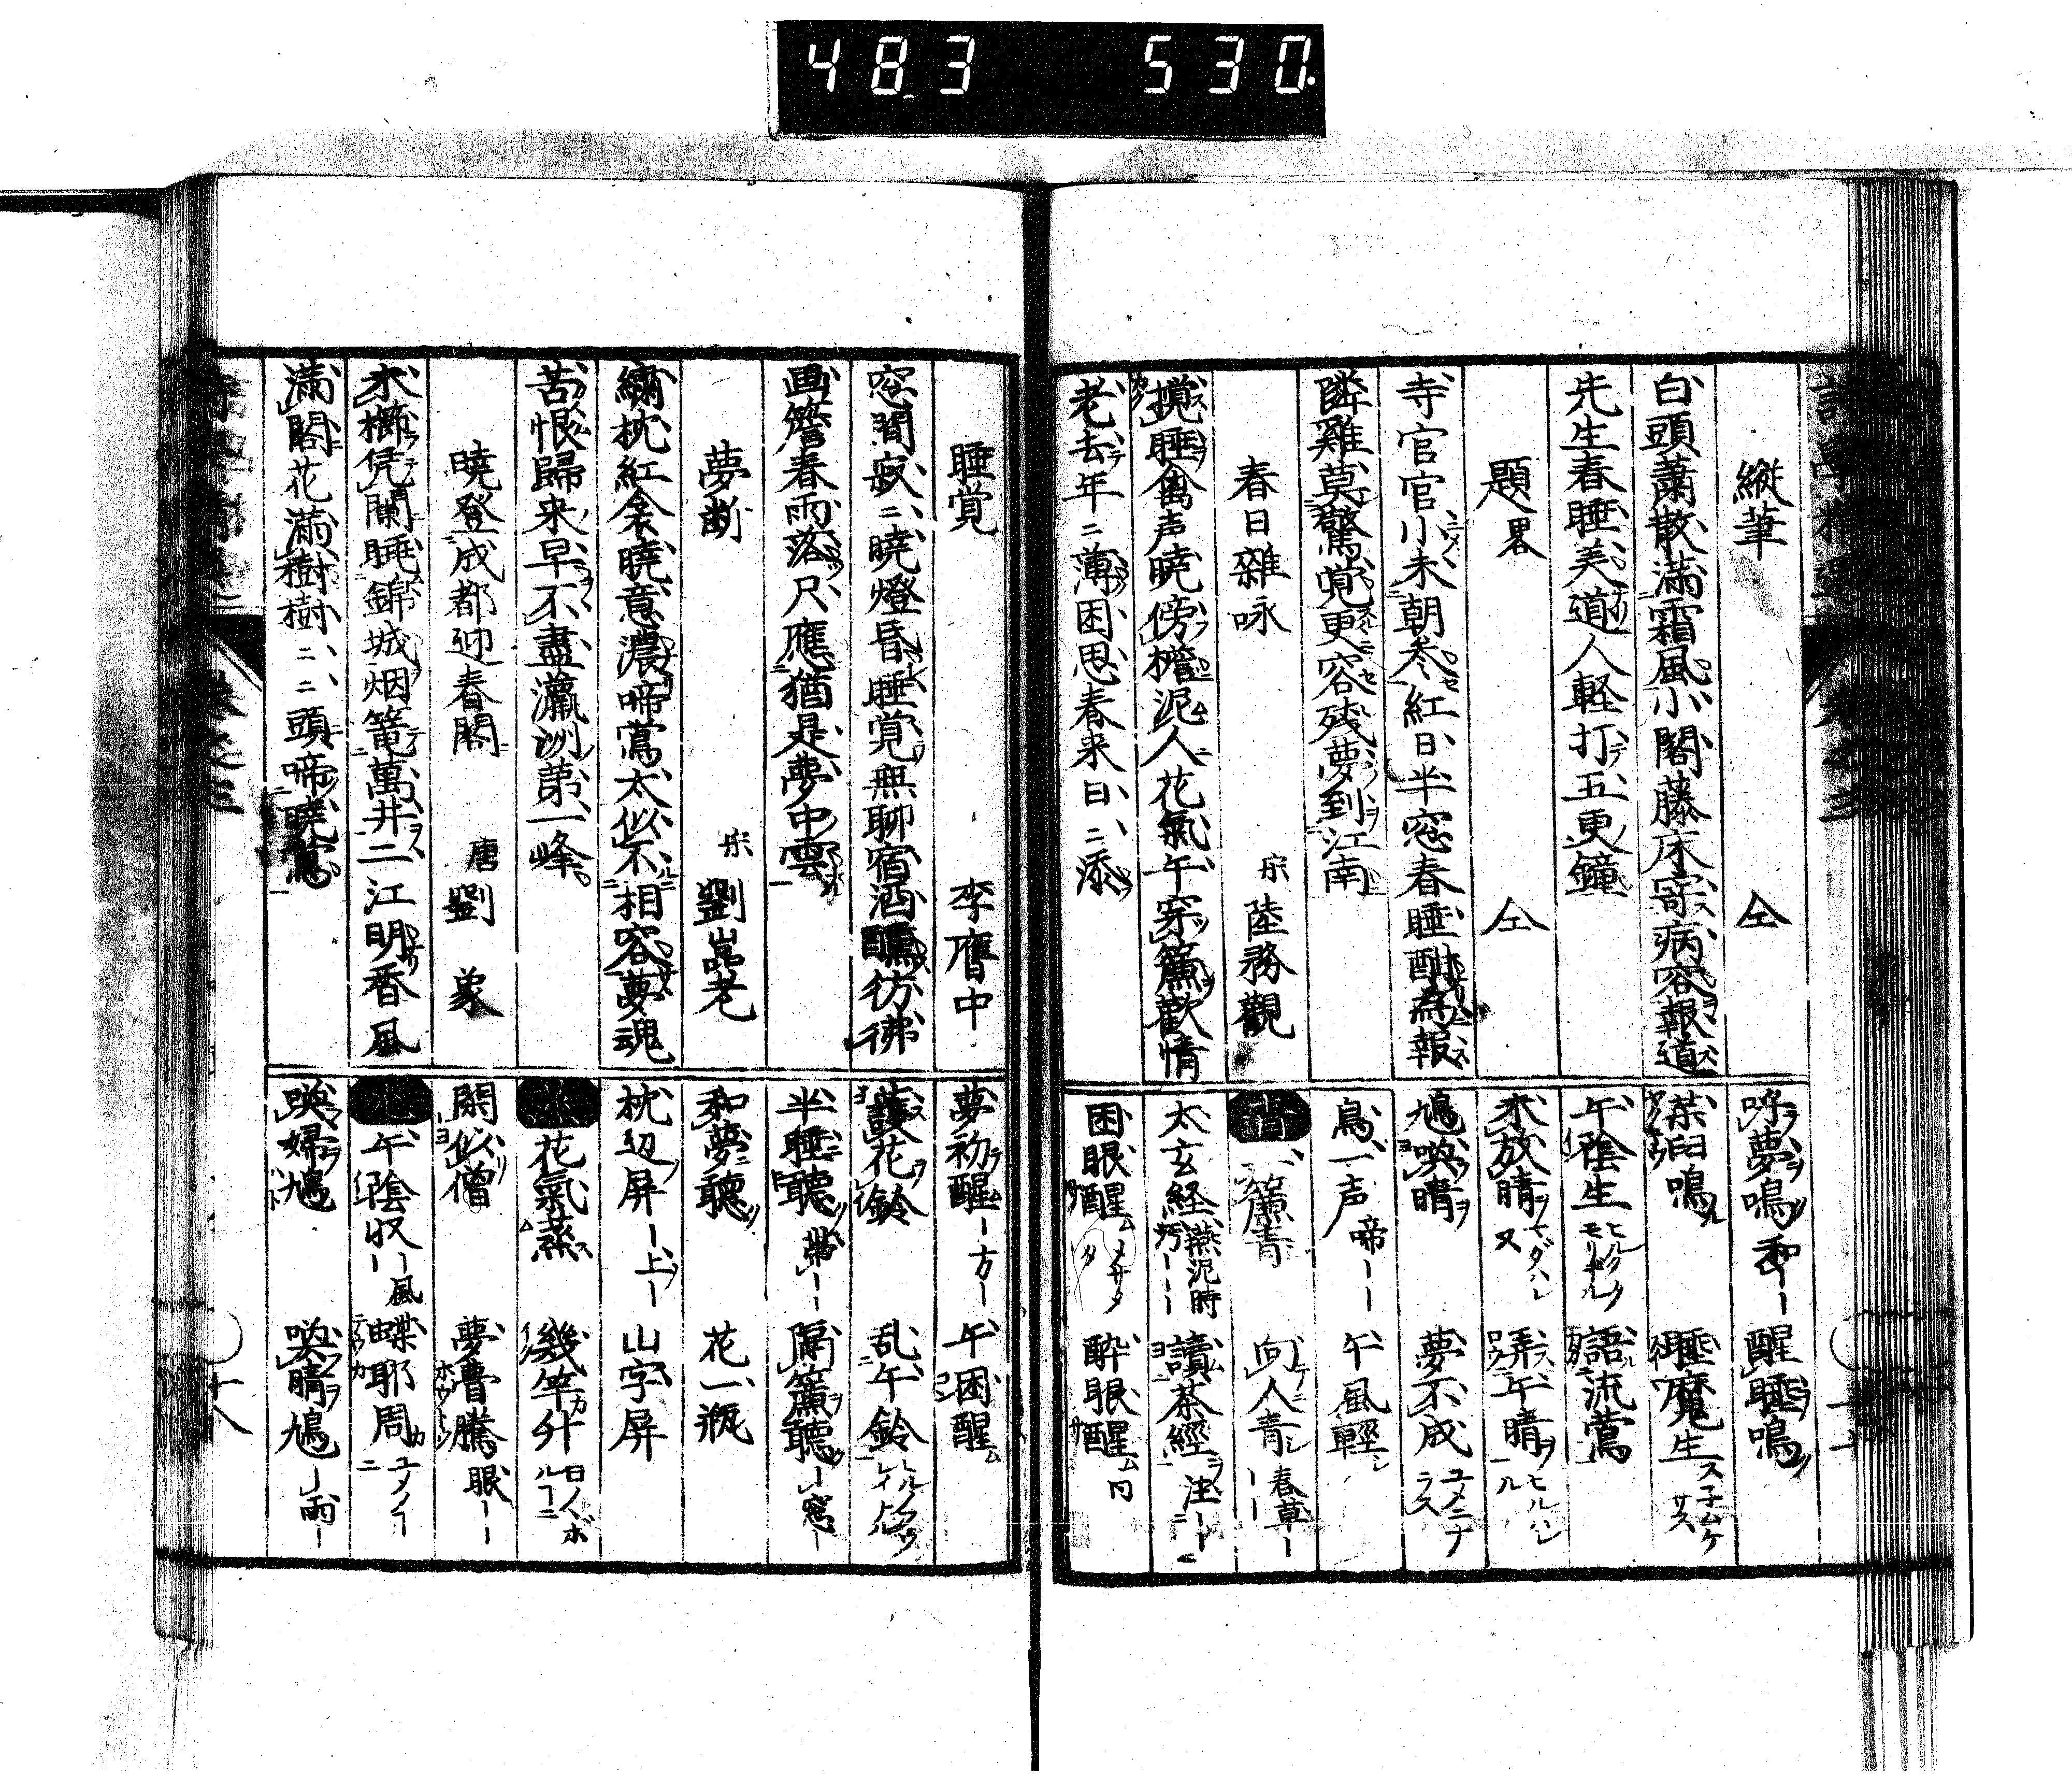 483 530.
縱筆 仝
白頭蕭散滿霜風小閣藤床寄病容報道
先生春睡美道人軽打五更鐘
題畧 仝
寺官官小未朝参紅日半窓春睡酣為報
隣雞莫驚覚更容残夢到江南
春日雜咏 宋 陸務觀
攪睡禽声暁傍檐泥人花氣午穿簾歡情
老去年ニ薄困思春来日ニ添
呼夢鳴 和ーー 醒睡鳴
茶臼鳴 睡魔生
午陰生 語流鶯
未放晴 弄午晴
鳩喚晴 夢不成
鳥一声 啼ーー 午風輕
一簾青 向人青 春草ーーー
太玄経 燕泥時汚ーーー 讀茶經 注ーー
困眼醒 酔眼醒
睡覚 李膺中
窓間寂ニ暁燈昏睡覚無聊宿酒醺彷彿
画簷春雨落只應猶是夢中雲
夢断 宋 劉崑老
繍枕紅衾暁意濃啼鶯太似不相容夢魂
苦恨歸来早不盡瀛洲第一峰
暁登成都迎春閣 唐 劉象
木櫛凭闌睡錦城烟篭萬井二江明香風
滿閣花滿樹樹ニニ頭啼暁鶯
夢初醒 ー方ー 午困醒
護花鈴 乱午鈴
半睡聽 帯ーー 隔簾聽 ー窓ー
和夢聽 花一瓶
枕辺屏 ー上ー 山字屏
花氣蒸 幾竿升
閑似僧 夢曹騰 眼ーー
午陰収 ーー風 蝶耶周
喚婦鳩 喚晴鳩 ー雨ー
十八